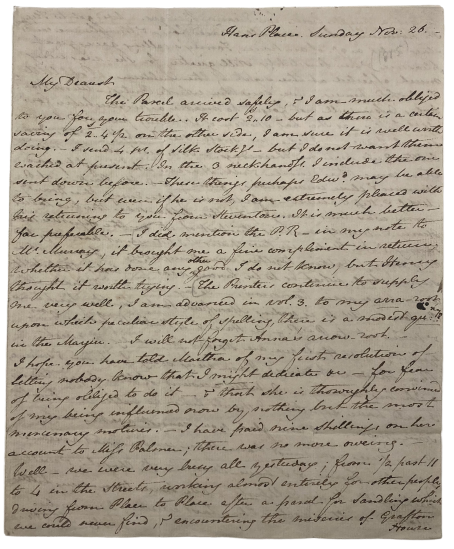 Hans Place, Sunday Nov: 26. -
My Dearest,
The Parcel arrived safely, & I am much obliged
to you for your trouble. - It cost 2.10 - but as there is a certain
saving of 2.4½ on the other side, I am sure it is well worth
doing. - I send 4 pr. of Silk Stockgs - but I do not want them
washed at present. In the 3 neckhandfs. I include the one
sent down before. - These things perhaps Edwd. may be able
to bring, but even if he is not, I am extremely pleased with
his returning to you from Steventon. It is much better -
far preferable. - I did mention the P.R - in my note to
Mr. Murray, it brought me a fine compliment in return;
Whether it has done any other good I do not know, but Henry
thought it worth trying. - The Printers continue to supply
me very well, I am advanced in vol. 3. to my arra-root,
upon which peculiar style of spelling, there is a modest qu:ry
in the Margin. - I will not forget Anna's arrow-root. -
I hope you have told Martha of my first resolution of
letting nobody know that I might dedicate &c - for fear
of being obliged to do it - & that she is thoroughly convinced
of my being influenced now by nothing but the most
mercenary motives. - I have paid nine Shillings on her
account to Miss Palmer; there was no more oweing. -
Well - we were very busy all yesterday; from ½ past 11
to 4 in the Streets, working almost entirely for other people,
driving from Place to Place after a parcel for Sandling which
we could never find, & encountering the miseries of Grafton
House